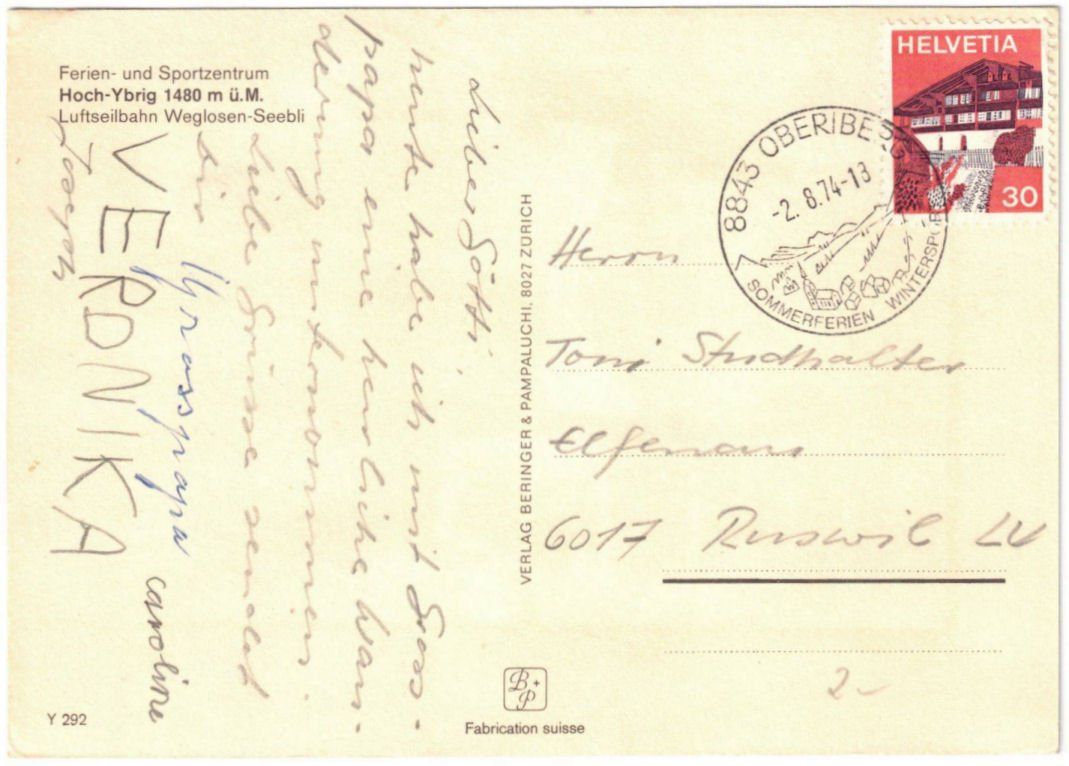 Ferien- und Sportzentrum
Hoch-Ybrig 1480 m ü.M.
Luftseilbahn Weglosen-Seebli
Lieber Götti
heute habe ich mit Gross-
papa eine herrliche Wan-
derung unternommen.
Liebe Grüsse sendet
Dir
VERONIKA
Grosspapa
caroline
Joseph
Y 292
VERLAG BERINGER & PAMPALUCHI, 8027 ZÜRICH
B+P
Fabrication suisse
HELVETIA
30
8843 OBERIBERG
-2. 8.74-13
SOMMERFERIEN WINTERSPORT
Herrn
Toni Studhalter
Elfenau
6017 Ruswil LU
2-